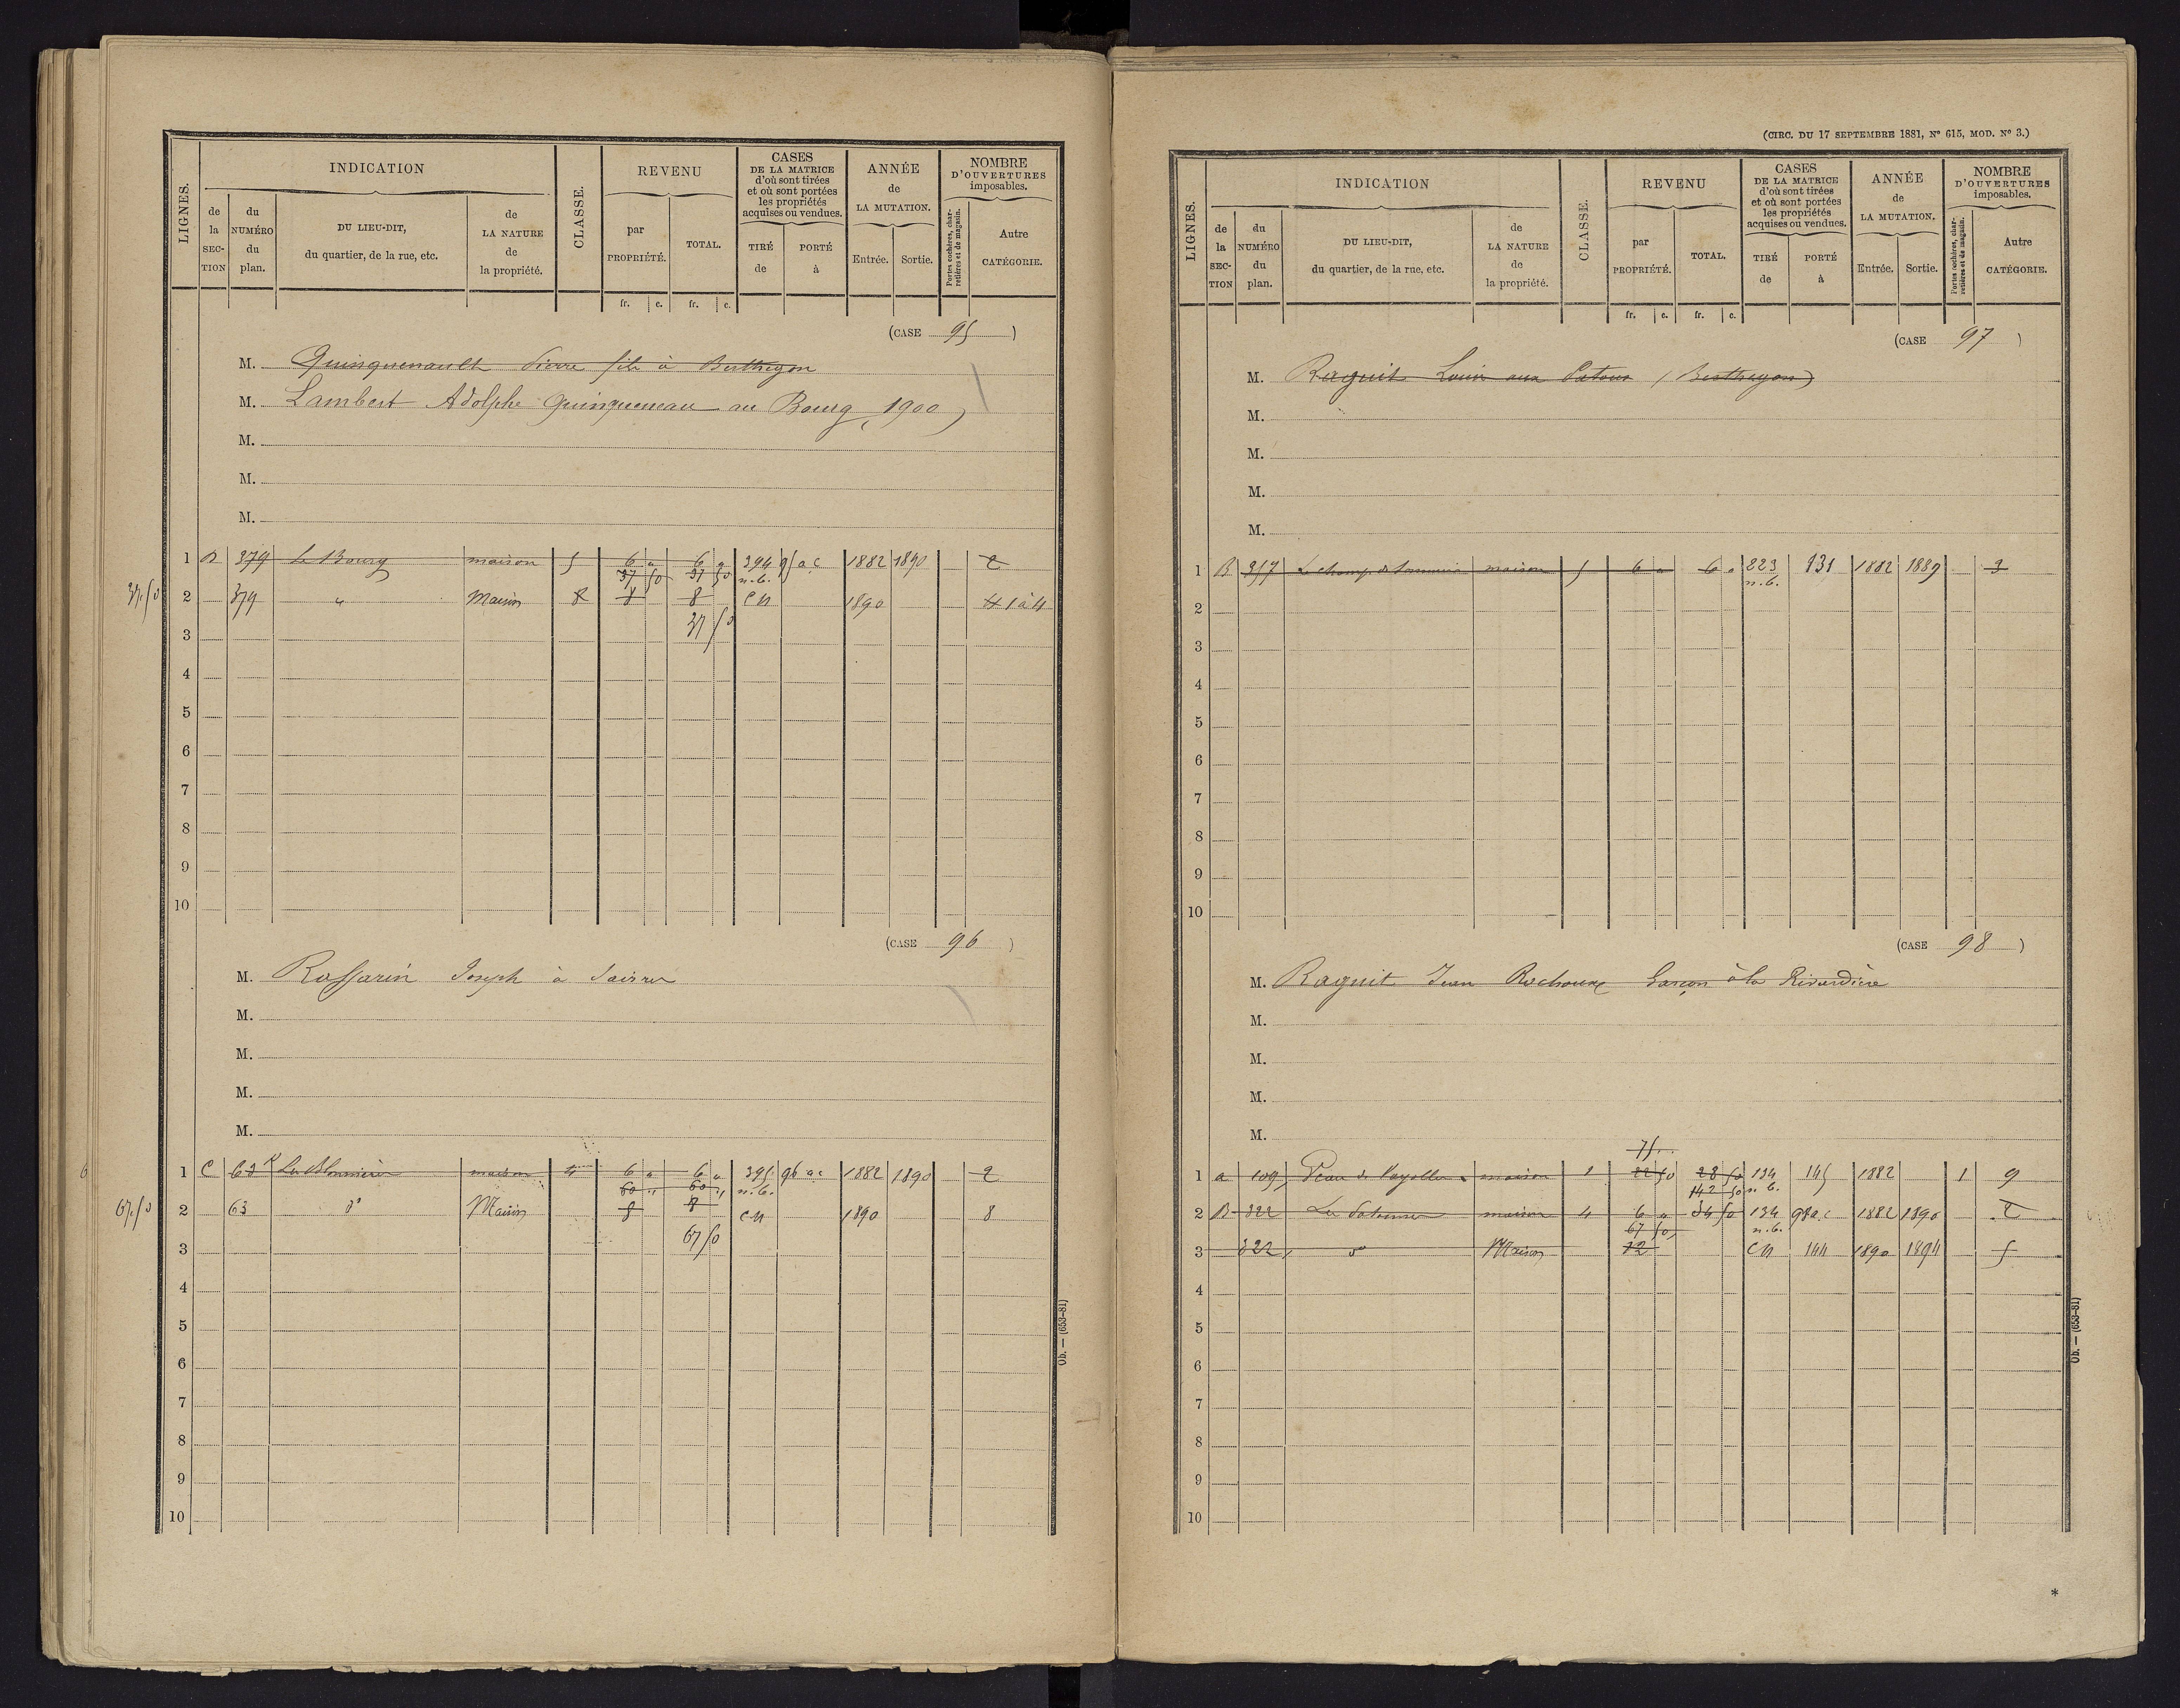 INDICATION
REVENU
CASES
DE LA MATRICE
d'où sont tirées
et où sont portées
les propriétés
acquises ou vendues.
ANNÉE
de
LA MUTATION.
NOMBRE
D'OUVERTURES
imposables.
LIGNES.
de la SECTION
du NUMÉRO du plan.
DU LIEU-DIT,
du quartier, de la rue, etc.
de LA NATURE de la propriété.
CLASSE.
par PROPRIÉTÉ.
TOTAL.
TIRÉ de
PORTÉ à
Entrée.
Sortie.
Portes cochères, charretières et de magasin.
Autre CATÉGORIE.
fr. c. fr. c.
(CASE 95)
M. Quinquenault Pierre fils à Berthegon
M. Lambert Adolphe Quinqueneau au Bourg (1900)
M.
M.
M.
1 B 379 Le Bourg maison 5 6 " 6 " 394 95 a.c 1882 1890 2
37 50 37 50 n.b.
37.50 2 379 " Maison 8 8 8 CN 1890 4 1 à 4
3 37 50
4
5
6
7
8
9
10
(CASE 96)
M. Rossarin Joseph à
M.
M.
M.
M.
6 1 C 63 maison 4 6 " 6 " 395 96 a.c 1882 1890 2
60 " 60 " n.b.
67.50 2 63 d° Maison 8 8 CN 1890 8
3 67 50
4
5
6
7
8
9
10
Ob. — (653-81)
(CIRC. DU 17 SEPTEMBRE 1881, N° 615, MOD. N° 3.)
INDICATION
REVENU
CASES
DE LA MATRICE
d'où sont tirées
et où sont portées
les propriétés
acquises ou vendues.
ANNÉE
de
LA MUTATION.
NOMBRE
D'OUVERTURES
imposables.
LIGNES.
de la SECTION
du NUMÉRO du plan.
DU LIEU-DIT,
du quartier, de la rue, etc.
de LA NATURE de la propriété.
CLASSE.
par PROPRIÉTÉ.
TOTAL.
TIRÉ de
PORTÉ à
Entrée.
Sortie.
Portes cochères, charretières et de magasin.
Autre CATÉGORIE.
fr. c. fr. c.
(CASE 97)
M. Raguit Louis aux (Berthegon)
M.
M.
M.
M.
1 B 357 Le champ de maison 5 6 " 6 " 223 131 1882 1889 3
n.b.
2
3
4
5
6
7
8
9
10
(CASE 98)
M. Raguit Jean Rochoux Garçon à la Rivardière
M.
M.
M.
M.
75 . .
1 a 109 maison 1 22 50 28 50 134 145 1882 1 9
142 50 n.b.
2 B 322 maison 4 6 " 34 50 134 98 a.c 1882 1890 2
67 50 n.b.
3 322 d° Maison 12 CN 144 1890 1894 5
4
5
6
7
8
9
10
Ob. — (653-81)
*